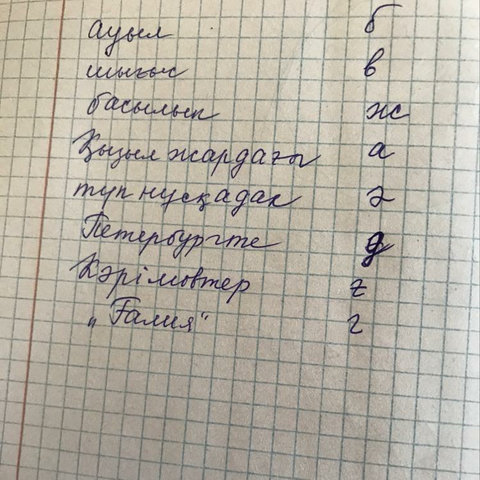 ауыл б
шығыс в
басылып ж
Қызыл жардағы а
түп нұсқадан ә
Петербургте д
Кәрімовтер
"Ғалия" г